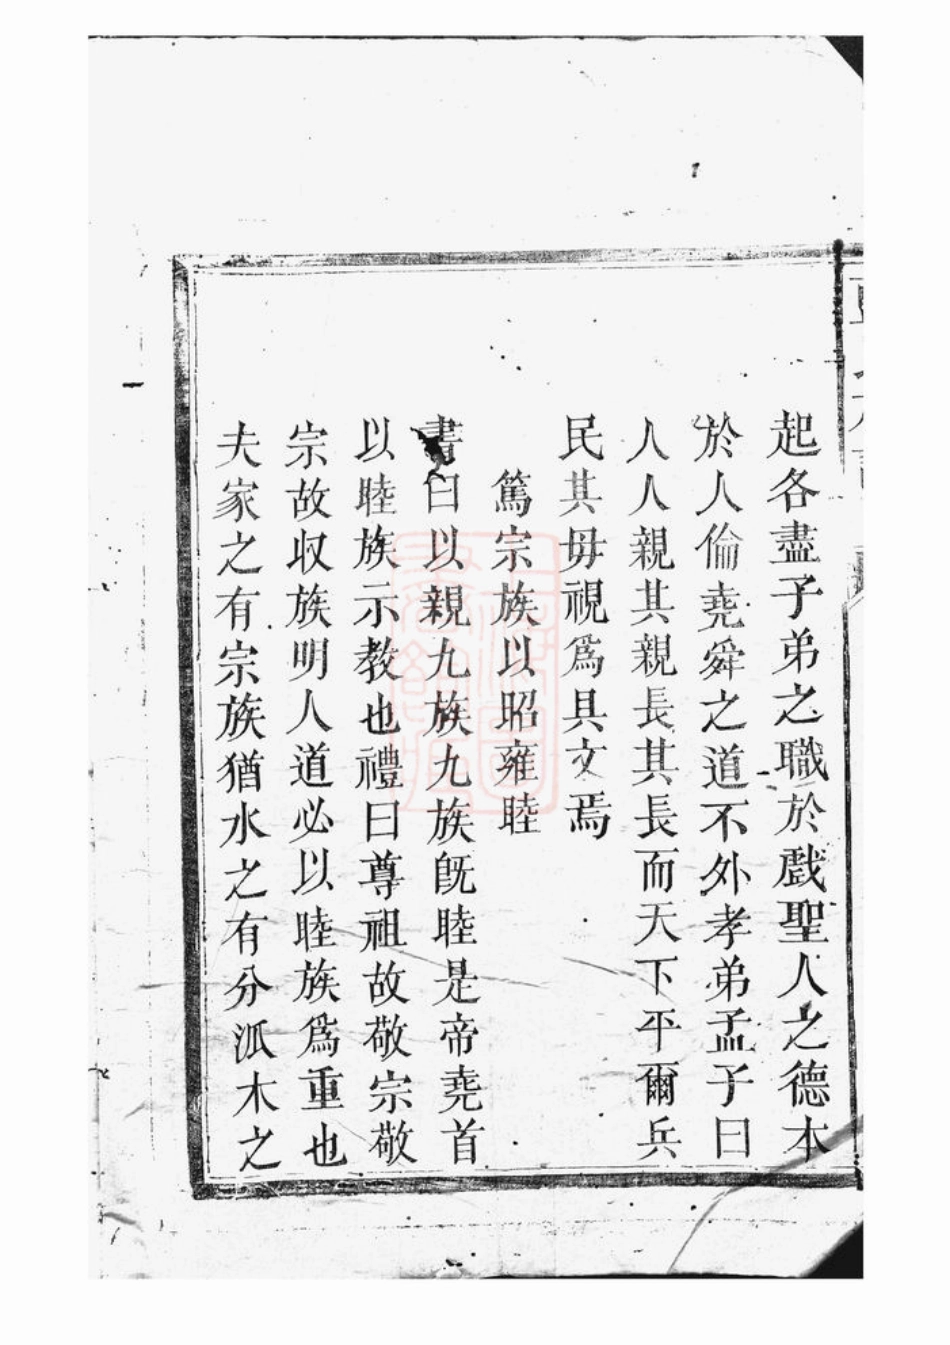 起各盡子弟之職於戲聖人之德本
於人倫堯舜之道不外孝弟孟子曰
人人親其親長其長而天下平爾兵
民其毋視爲具文焉
篤宗族以昭雍睦
書曰以親九族九族旣睦是帝堯首
以睦族示教也禮曰尊祖故敬宗敬
宗故収族明人道必以睦族爲重也
夫家之有宗族猶水之有分派木之